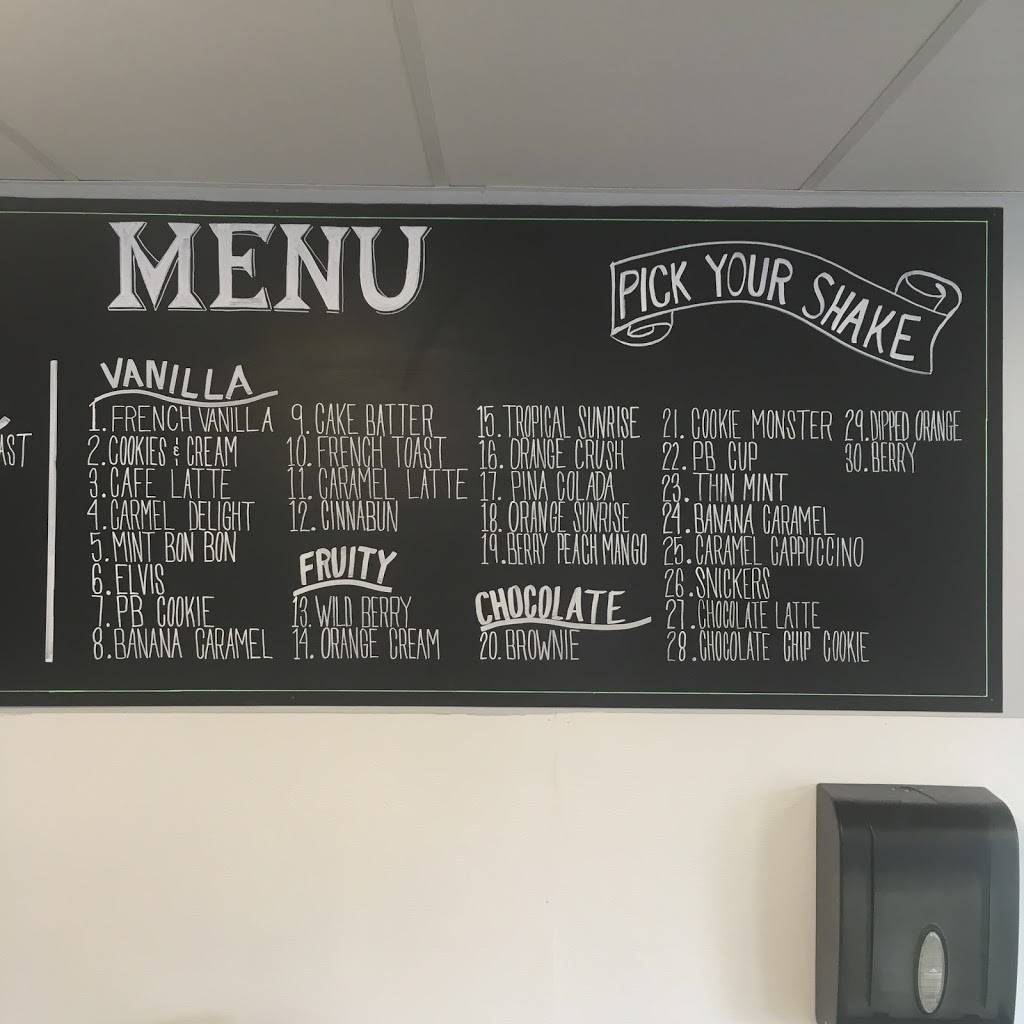 MENU
PICK YOUR SHAKE
AST
VANILLA
1. FRENCH VANILLA
2. COOKIES & CREAM
3. CAFE LATTE
4. CARMEL DELIGHT
5. MINT BON BON
6. ELVIS
7. PB COOKIE
8. BANANA CARAMEL
9. CAKE BATTER
10. FRENCH TOAST
11. CARAMEL LATTE
12. CINNABUN
FRUITY
13. WILD BERRY
14. ORANGE CREAM
15. TROPICAL SUNRISE
16. ORANGE CRUSH
17. PINA COLADA
18. ORANGE SUNRISE
19. BERRY PEACH MANGO
CHOCOLATE
20. BROWNIE
21. COOKIE MONSTER
22. PB CUP
23. THIN MINT
24. BANANA CARAMEL
25. CARAMEL CAPPUCCINO
26. SNICKERS
27. CHOCOLATE LATTE
28. CHOCOLATE CHIP COOKIE
29. DIPPED ORANGE
30. BERRY